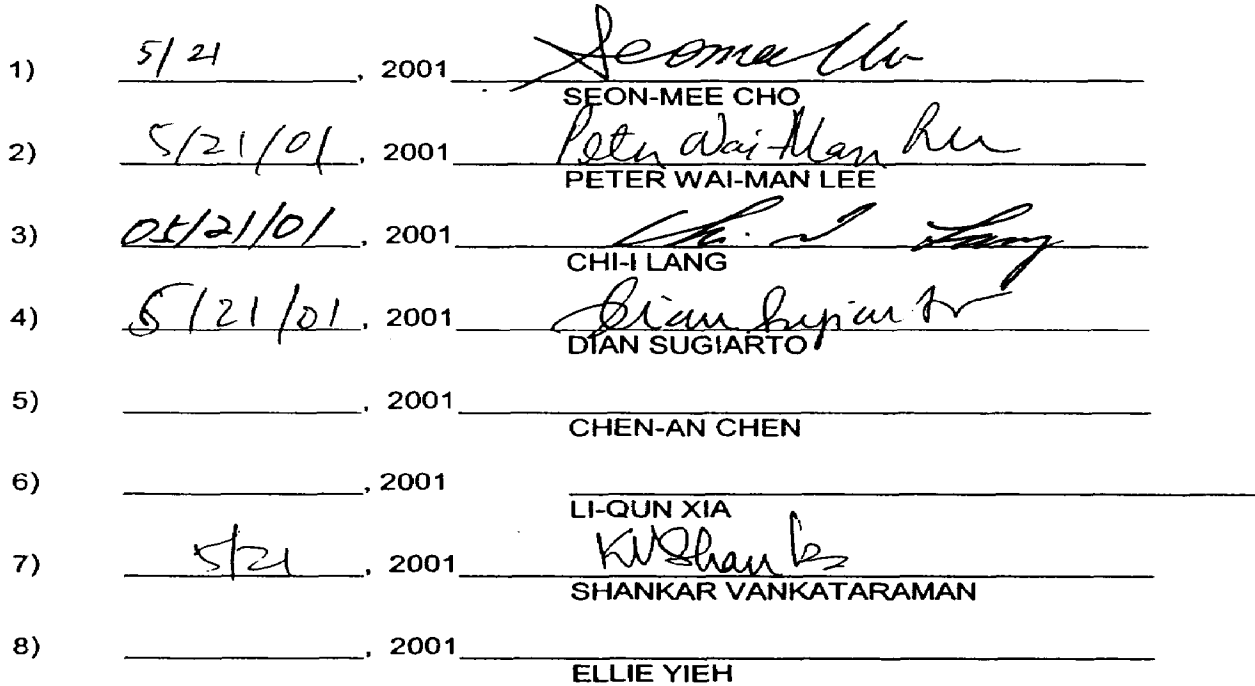 1) 5/21, 2001 Seonmee Cho
SEON-MEE CHO
2) 5/21/01, 2001 Peter Wai-Man Lee
PETER WAI-MAN LEE
3) 05/21/01, 2001 Chi-I Lang
CHI-I LANG
4) 5/21/01, 2001 Dian Sugiarto
DIAN SUGIARTO
5) , 2001
CHEN-AN CHEN
6) , 2001
LI-QUN XIA
7) 5/21, 2001
SHANKAR VANKATARAMAN
8) , 2001
ELLIE YIEH